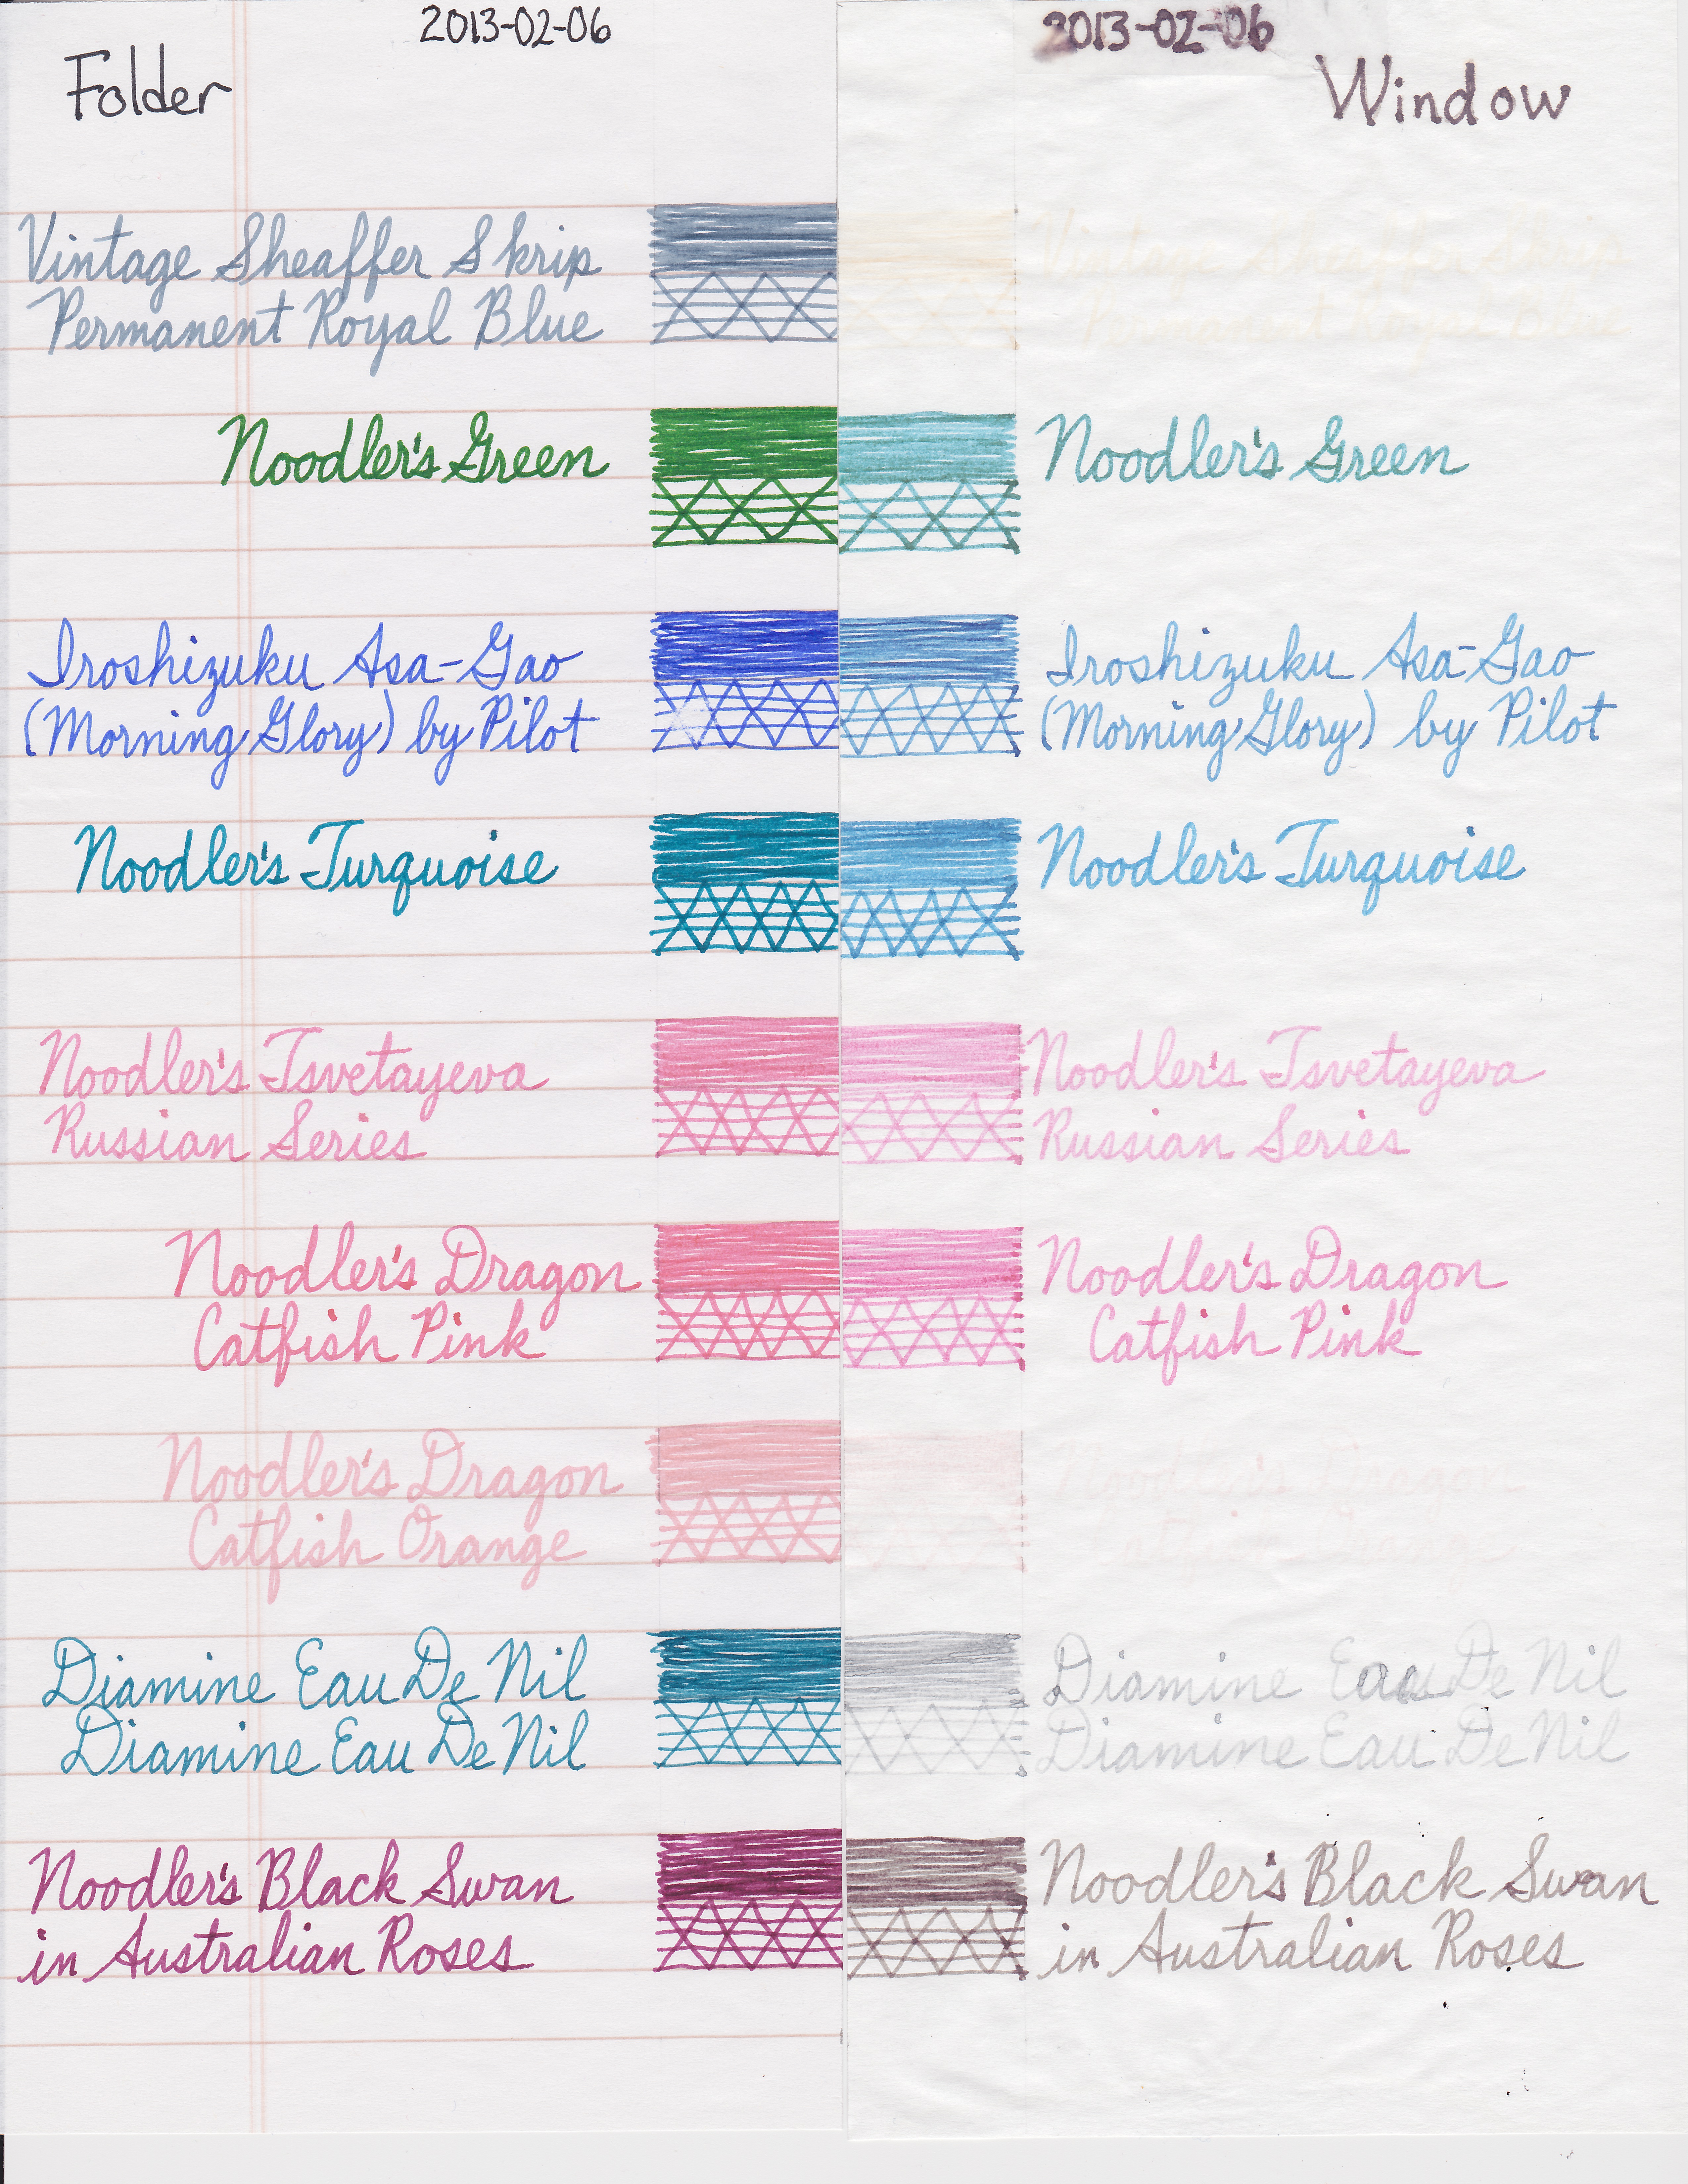 2013-02-06 2013-02-06
Folder Window
Vintage Sheaffer Skrip Vintage Sheaffer Skrip
Permanent Royal Blue Permanent Royal Blue
Noodler's Green Noodler's Green
Iroshizuku Asa-Gao Iroshizuku Asa-Gao
(Morning Glory) by Pilot (Morning Glory) by Pilot
Noodler's Turquoise Noodler's Turquoise
Noodler's Tsvetayeva Noodler's Tsvetayeva
Russian Series Russian Series
Noodler's Dragon Noodler's Dragon
Catfish Pink Catfish Pink
Noodler's Dragon Noodler's Dragon
Catfish Orange Catfish Orange
Diamine Eau De Nil Diamine Eau De Nil
Diamine Eau De Nil Diamine Eau De Nil
Noodler's Black Swan Noodler's Black Swan
in Australian Roses in Australian Roses